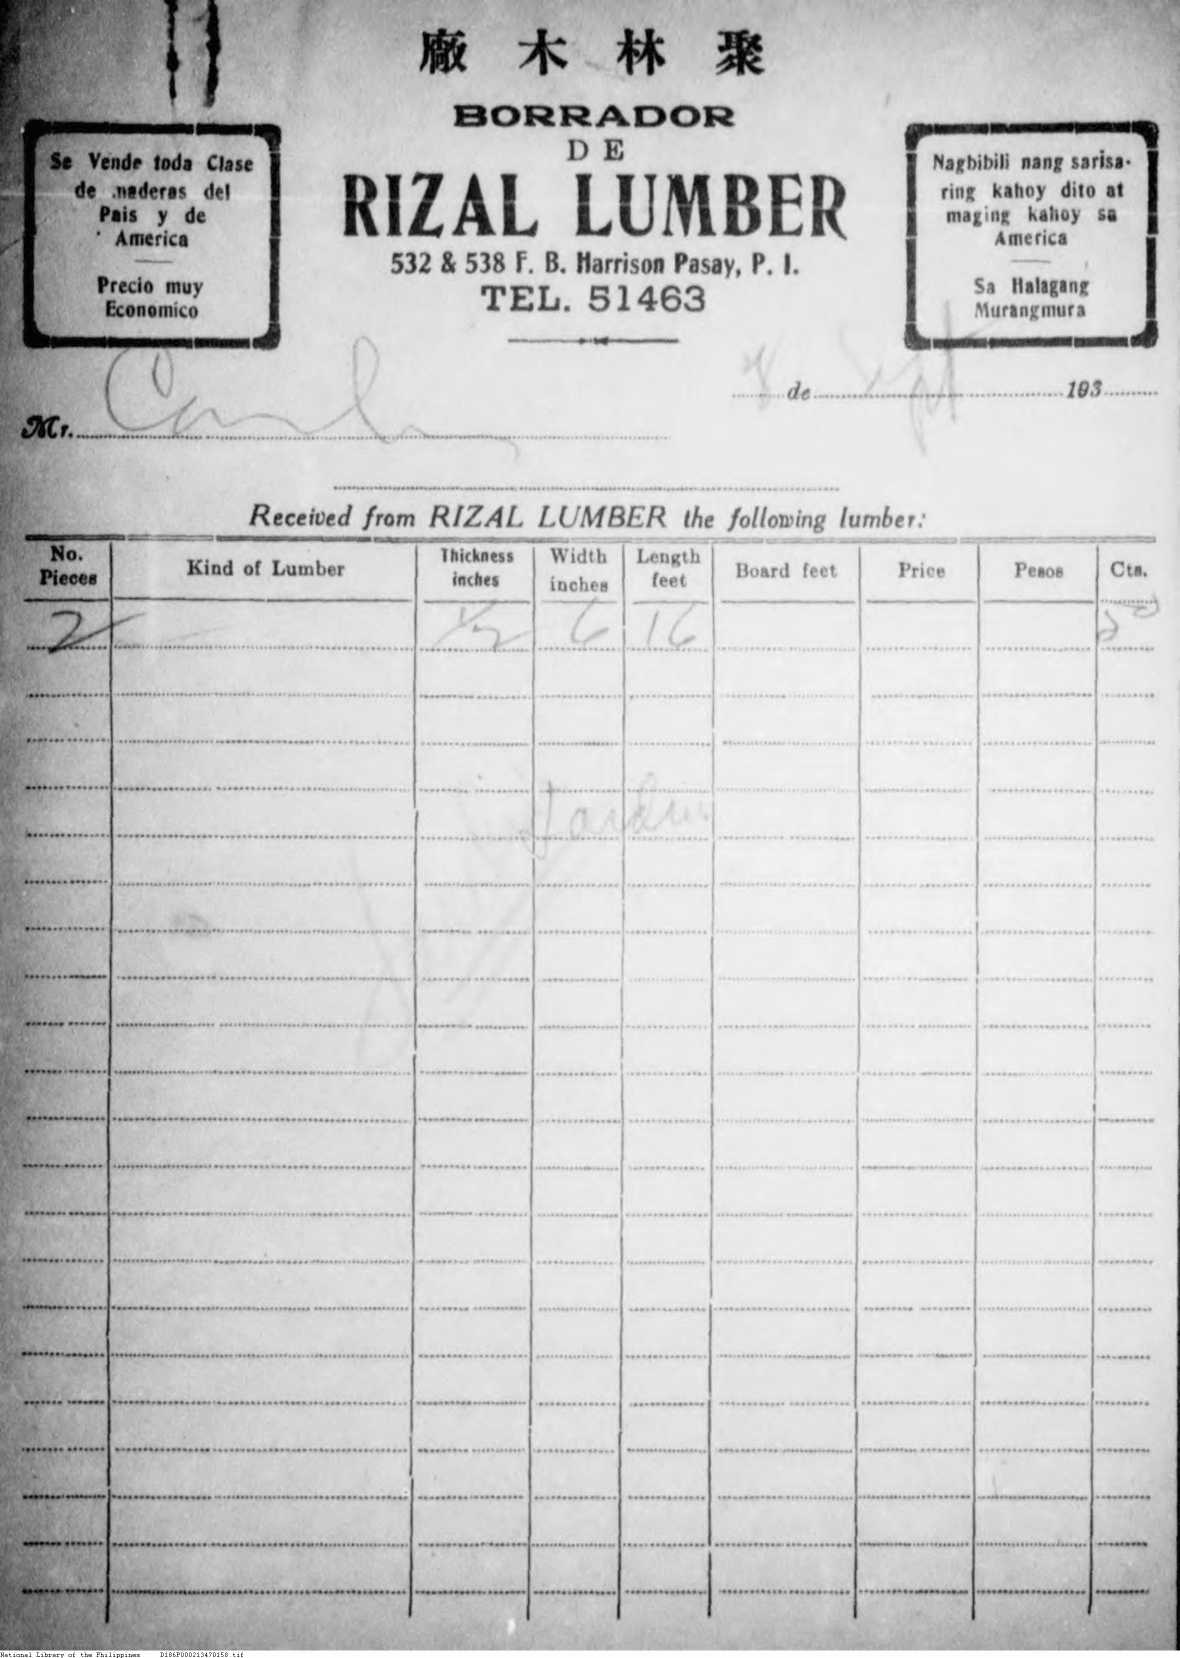 廠木林聚
BORRADOR
DE
RIZAL LUMBER
532 & 538 F. B. Harrison Pasay, P. I.
TEL. 51463
Se Vende toda Clase
de maderas del
Pais y de
America
Precio muy
Economico
Nagbibili nang sarisa-
ring kahoy dito at
maging kahoy sa
America
Sa Halagang
Murangmura
8 de Sept 193
Mr.
Received from RIZAL LUMBER the following lumber:
No. Pieces Kind of Lumber Thickness inches Width inches Length feet Board feet Price Pesos Cts.
2 1/2 6 16 50
National Library of the Philippines D186P000213470158.tif